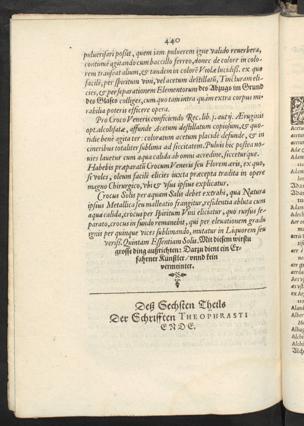 440
pulverisari possit, quem iam pulverem igne valido reverbera,
continuè agitando cum baccillo ferreo, donec de colore in colo-
rem transeat alium, & tandem in colorē Violæ lucidiss. ex quo
facili, per spiritum vini, vel acetum destillatū, Tincturam eli-
cies, & per separationem Elementorum des Abzugs im Grund
des Glases colliges, cum quo tam intra quàm extra corpus mi-
rabilia poteris efficere opera.
Pro Croco Veneris conficiendo Rec. lib. j. aut ij. Æruginis
opt. alcolisatæ, affunde Acetum destillatum copiosum, & quo-
tidie benè agita ter: coloratum acetum placidè defunde, & in
cineribus totaliter sublima ad siccitatem. Pulvis hic postea no-
vies lavetur cum aqua calida ab omni acredine, siccetur que.
Habebis præparatū Crocum Veneris seu Florem æris, ex quo,
si voles, oleum facili elicies iuxta præcepta tradita in opere
magno Chirurgico, vbi & vsus ipsius explicatur.
Crocus Solis per aquam Salis debet extrahi, qua Natura
ipsius Metallica seu malleatio frangitur, residentia abluta cum
aqua calida, crocus per Spiritum Vini elicitur, quo rursus se-
parato, crocus in fundo remanebit, qui per elevationem gradu
ignis per quinque vices sublimando, mutatur in Liquorem seu
verisſ. Quintam Essentiam Solis. Mit diesem wirstu
grosse ding außrichten: Darzu dient ein Er-
fahrner Künstler / vnnd kein
vermeinter.
Deß Sechsten Theils
Der Schrifften THEOPHRASTI
ENDE.